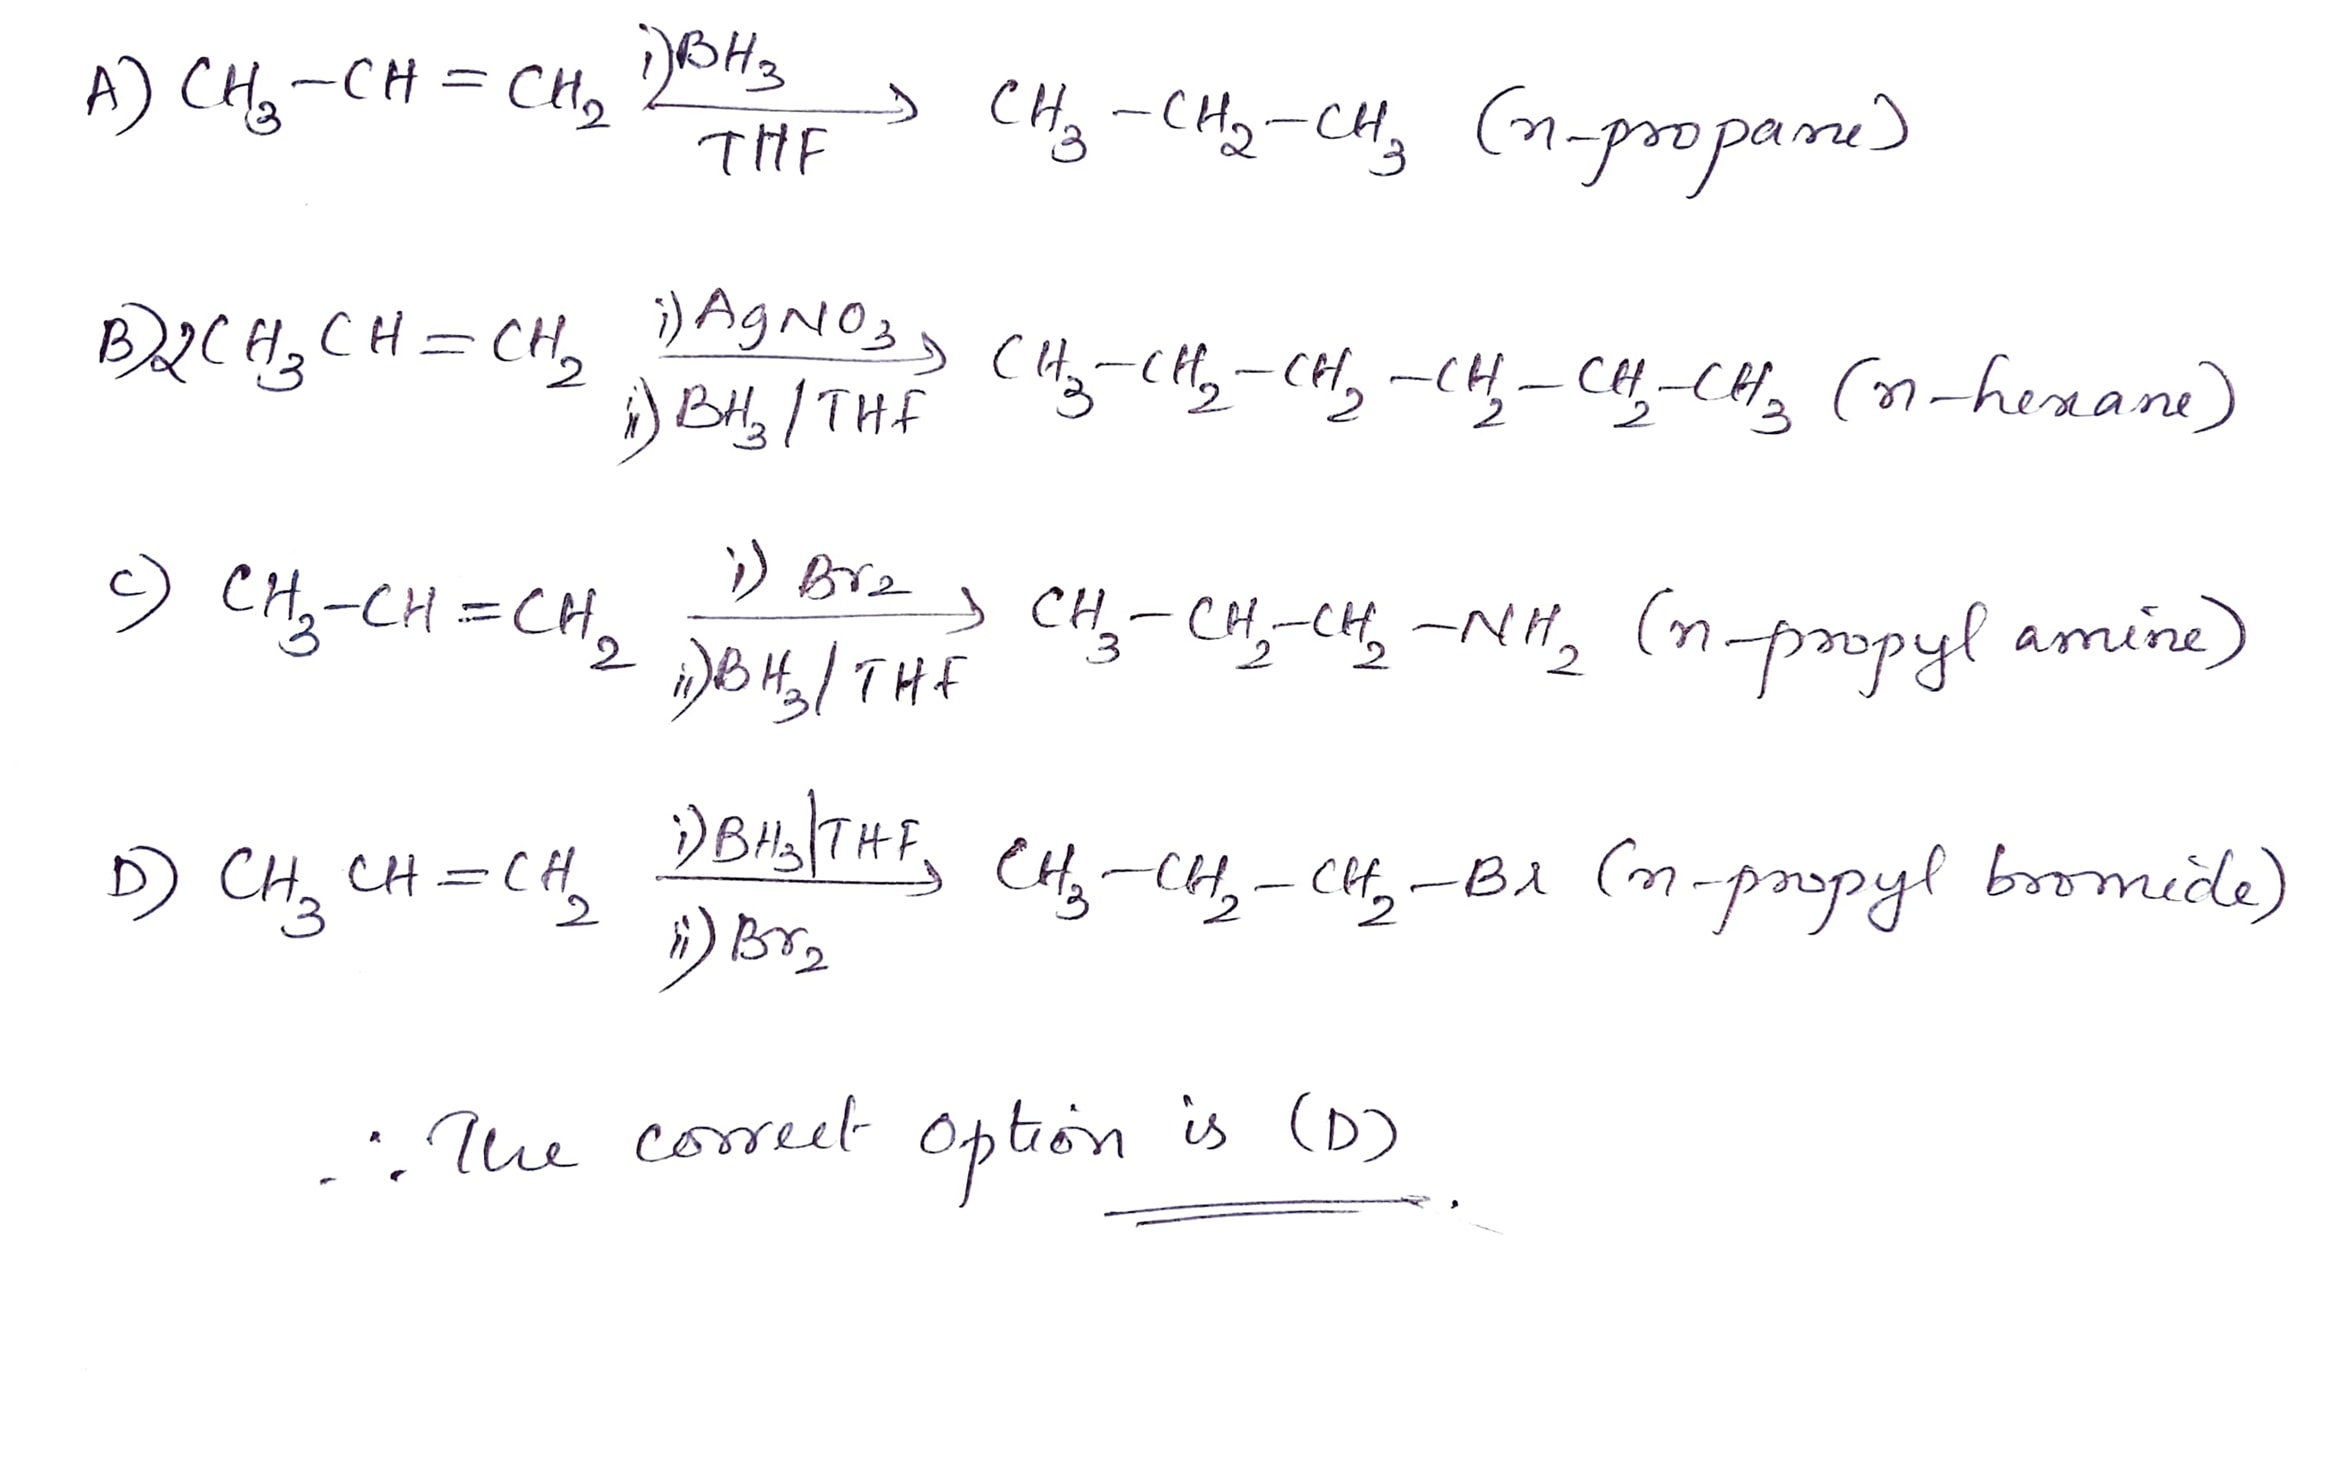 A) CH₃-CH=CH₂ i)BH₃ / THF → CH₃-CH₂-CH₃ (n-propane)
B) 2CH₃CH=CH₂ i)AgNO₃ / ii)BH₃/THF → CH₃-CH₂-CH₂-CH₂-CH₂-CH₃ (n-hexane)
C) CH₃-CH=CH₂ i) Br₂ / ii)BH₃/THF → CH₃-CH₂-CH₂-NH₂ (n-propyl amine)
D) CH₃CH=CH₂ i)BH₃/THF / ii)Br₂ → CH₃-CH₂-CH₂-Br (n-propyl bromide)
∴ The correct option is (D).